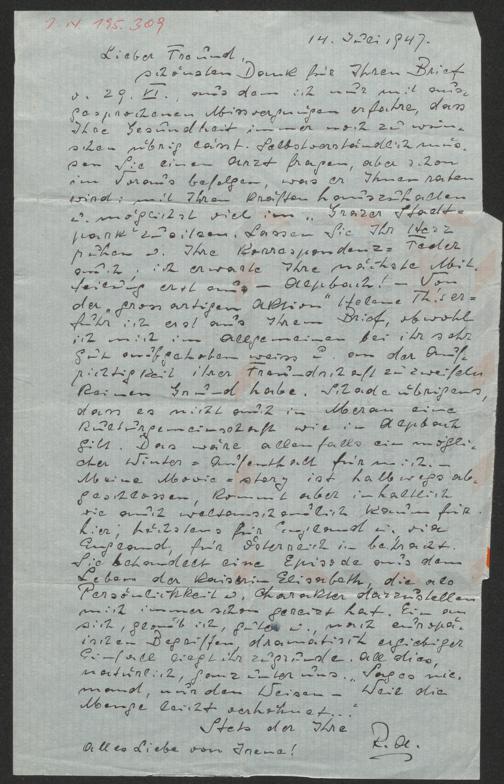 I.N. 195.309
14. Juli 1947.
Lieber Freund,
schönsten Dank für Ihren Brief
v. 29. VI., aus dem ich nur mit aus-
gesprochenem Missvergnügen erfahre, dass
Ihre Gesundheit immer noch zu wün-
schen übrig lässt. Selbstverständlich müs-
sen Sie einen Arzt fragen, aber schon
im Voraus befolgen, was er Ihnen raten
wird: mit Ihren Kräften hauszuhalten
u. möglichst viel im „Grazer Stadt-
park" zu sitzen. Lassen Sie Ihr Herz
ruhen u. Ihre Korrespondenz-Feder
auch; ich erwarte Ihre nächste Mit-
teilung erst aus - Alpbach! - Von
der „grossartigen Aktion" Helene Thimig er-
fuhr ich erst aus Ihrem Brief, obwohl
ich mich im Allgemeinen bei ihr sehr
gut aufgehoben weiss u. an der Auf-
richtigkeit ihrer Freundschaft zu zweifeln
keinen Grund habe. Schade übrigens,
dass es nicht auch in Meran eine
Kulturgemeinschaft wie in Alpbach
gibt. Das wäre allenfalls ein mögli-
cher Winter-Aufenthalt für mich. -
Meine Movie-story ist halbwegs ab-
geschlossen, kommt aber inhaltlich
wie auch weltanschaulich kaum für
hier, höchstens für England u. via
England, für Österreich in betracht.
Sie behandelt eine Episode aus dem
Leben der Kaiserin Elisabeth, die als
Persönlichkeit u. Charakter darzustellen
mich immer schon gereizt hat. Ein an
sich, glaub ich, guter u., nach europä-
ischen Begriffen, dramatisch ergiebiger
Einfall liegt ihr zugrunde. All dies,
natürlich, ganz unter uns. „Sagt es nie-
mand, nur den Weisen - Weil die
Menge leicht verhöhnet..."
Stets der Ihre
R.A.
Alles Liebe von Irene!